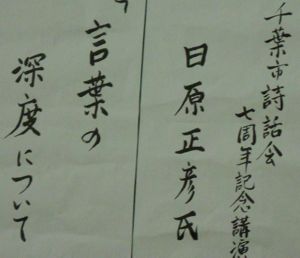 千葉市詩話会
七周年記念講演
日原正彦氏
言葉の
深度について